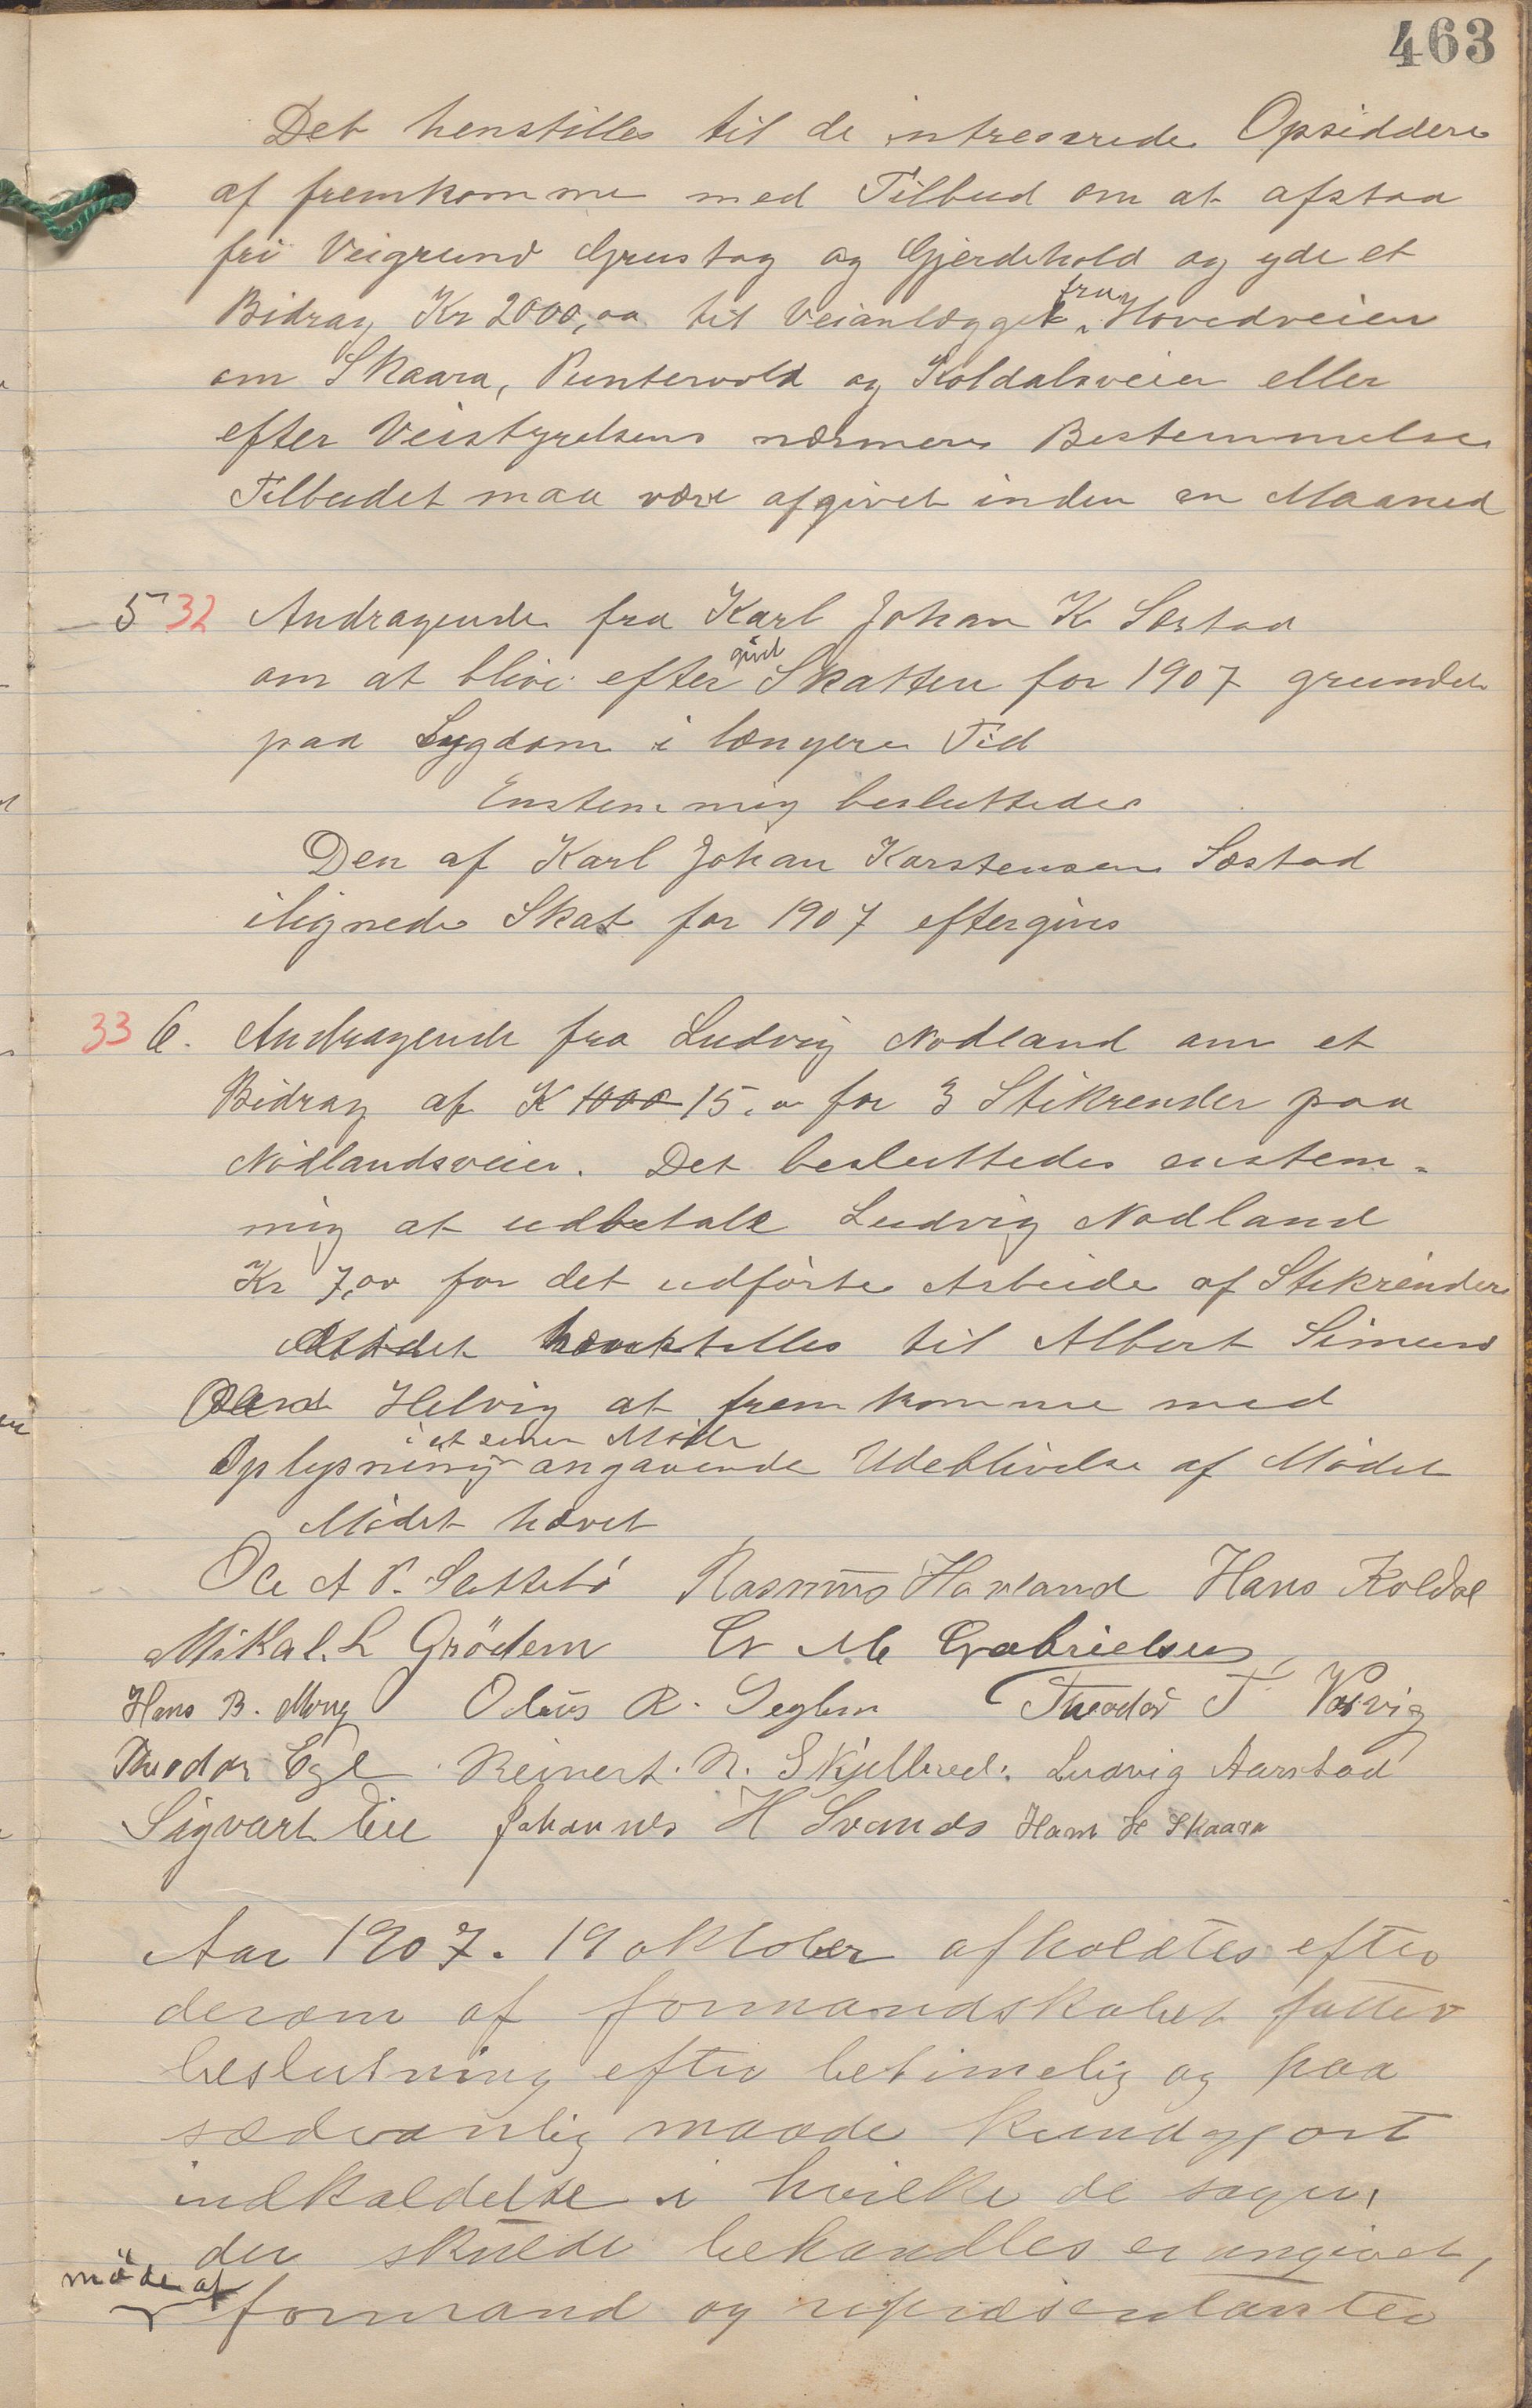 463
Det henstilles til de intreserede Opsiddere
af fremkomme med Tilbud om at afstaa
fri Veigrund Grustag og Gjerdehold og yde et
Bidrag Kr 2000,00 til Veianlægget fra Hovedveien
om Skaara, Puntervold og Koldalsveien eller
efter Veistyrelsens nærmere Bestemmelse
Tilbudet maa være afgivet inden en Maaned
5 32 Andragende fra Karl Johan K. Sæstad
om at blive eftergivet Skatten for 1907 grundet
paa Sygdom i længere Tid
Enstemmig besluttedes
Den af Karl Johan Karstensen Sæstad
ilignede Skat for 1907 eftergives
33 6. Andragende fra Ludvig Nodland om et
Bidrag af K 1000 15,00 for 3 Stikrender paa
Nodlandsveien. Det besluttedes enstem-
mig at udbetale Ludvig Nodland
Kr 7,00 for det udførte Arbeide af Stikrender
Det henstilles til Albert Simens
Helvig at fremkomme med
i et senere Møde
Oplysning angaaende Udeblivelse af Mødet
Mødet hævet
Ole A P. Slettebø Rasmus Havsland Hans Koldal
Mikal. L Grödem G M Gabrielsen
Hans B. Mong Oleus R. Seglem Theodor T Vasvig
Theodor Ege Reinert. N. Skjelbred. Ludvig Aarstad
Sigvart Eie Johannes H Svanes Hans H Skaara
Aar 1907. 19 oktober afholdtes efter
derom af formandskabet fattet
beslutning efter betimelig og paa
sædvanlig maade kundgjort
indkaldelse i hvilke de sager,
der skulde behandles er angivet,
møde af
formand og repræsentanter